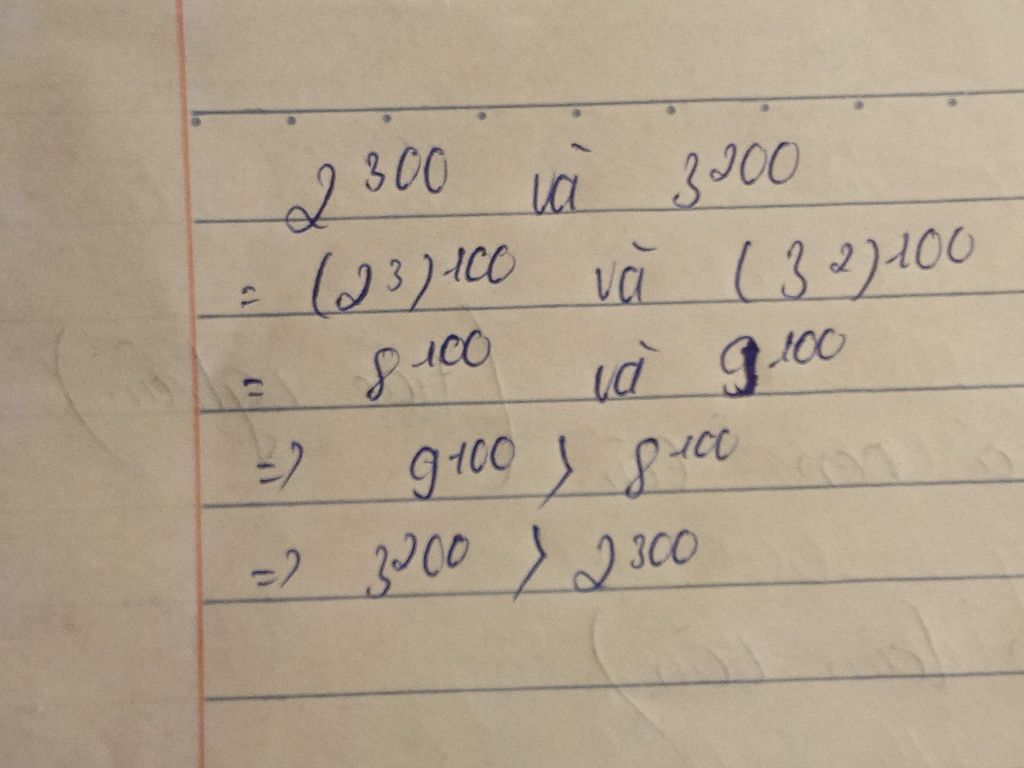 2^300 và 3^200
= (2^3)^100 và (3^2)^100
= 8^100 và 9^100
=> 9^100 > 8^100
=> 3^200 > 2^300